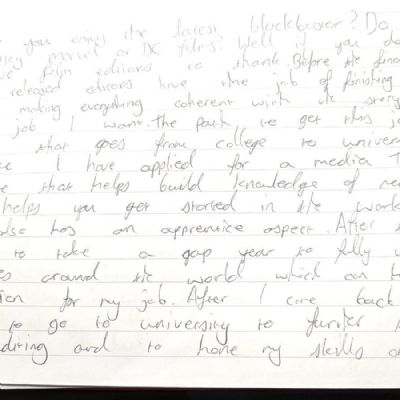 you enjoy the latest blockbuster? Do
Marvel or DC films? Well if you do
film editors to thank. Before the final
released editors have the job of finishing
making everything coherent with the story
job I want. The path to get this jo
that goes from college to univer
I have applied for a media T
that helps build knowledge of me
helps you get started in the work
also has an apprentice aspect. After
to take a gap year to fully
around the world which can
for my job. After I come back
to go to university to further
editing and to hone my skills